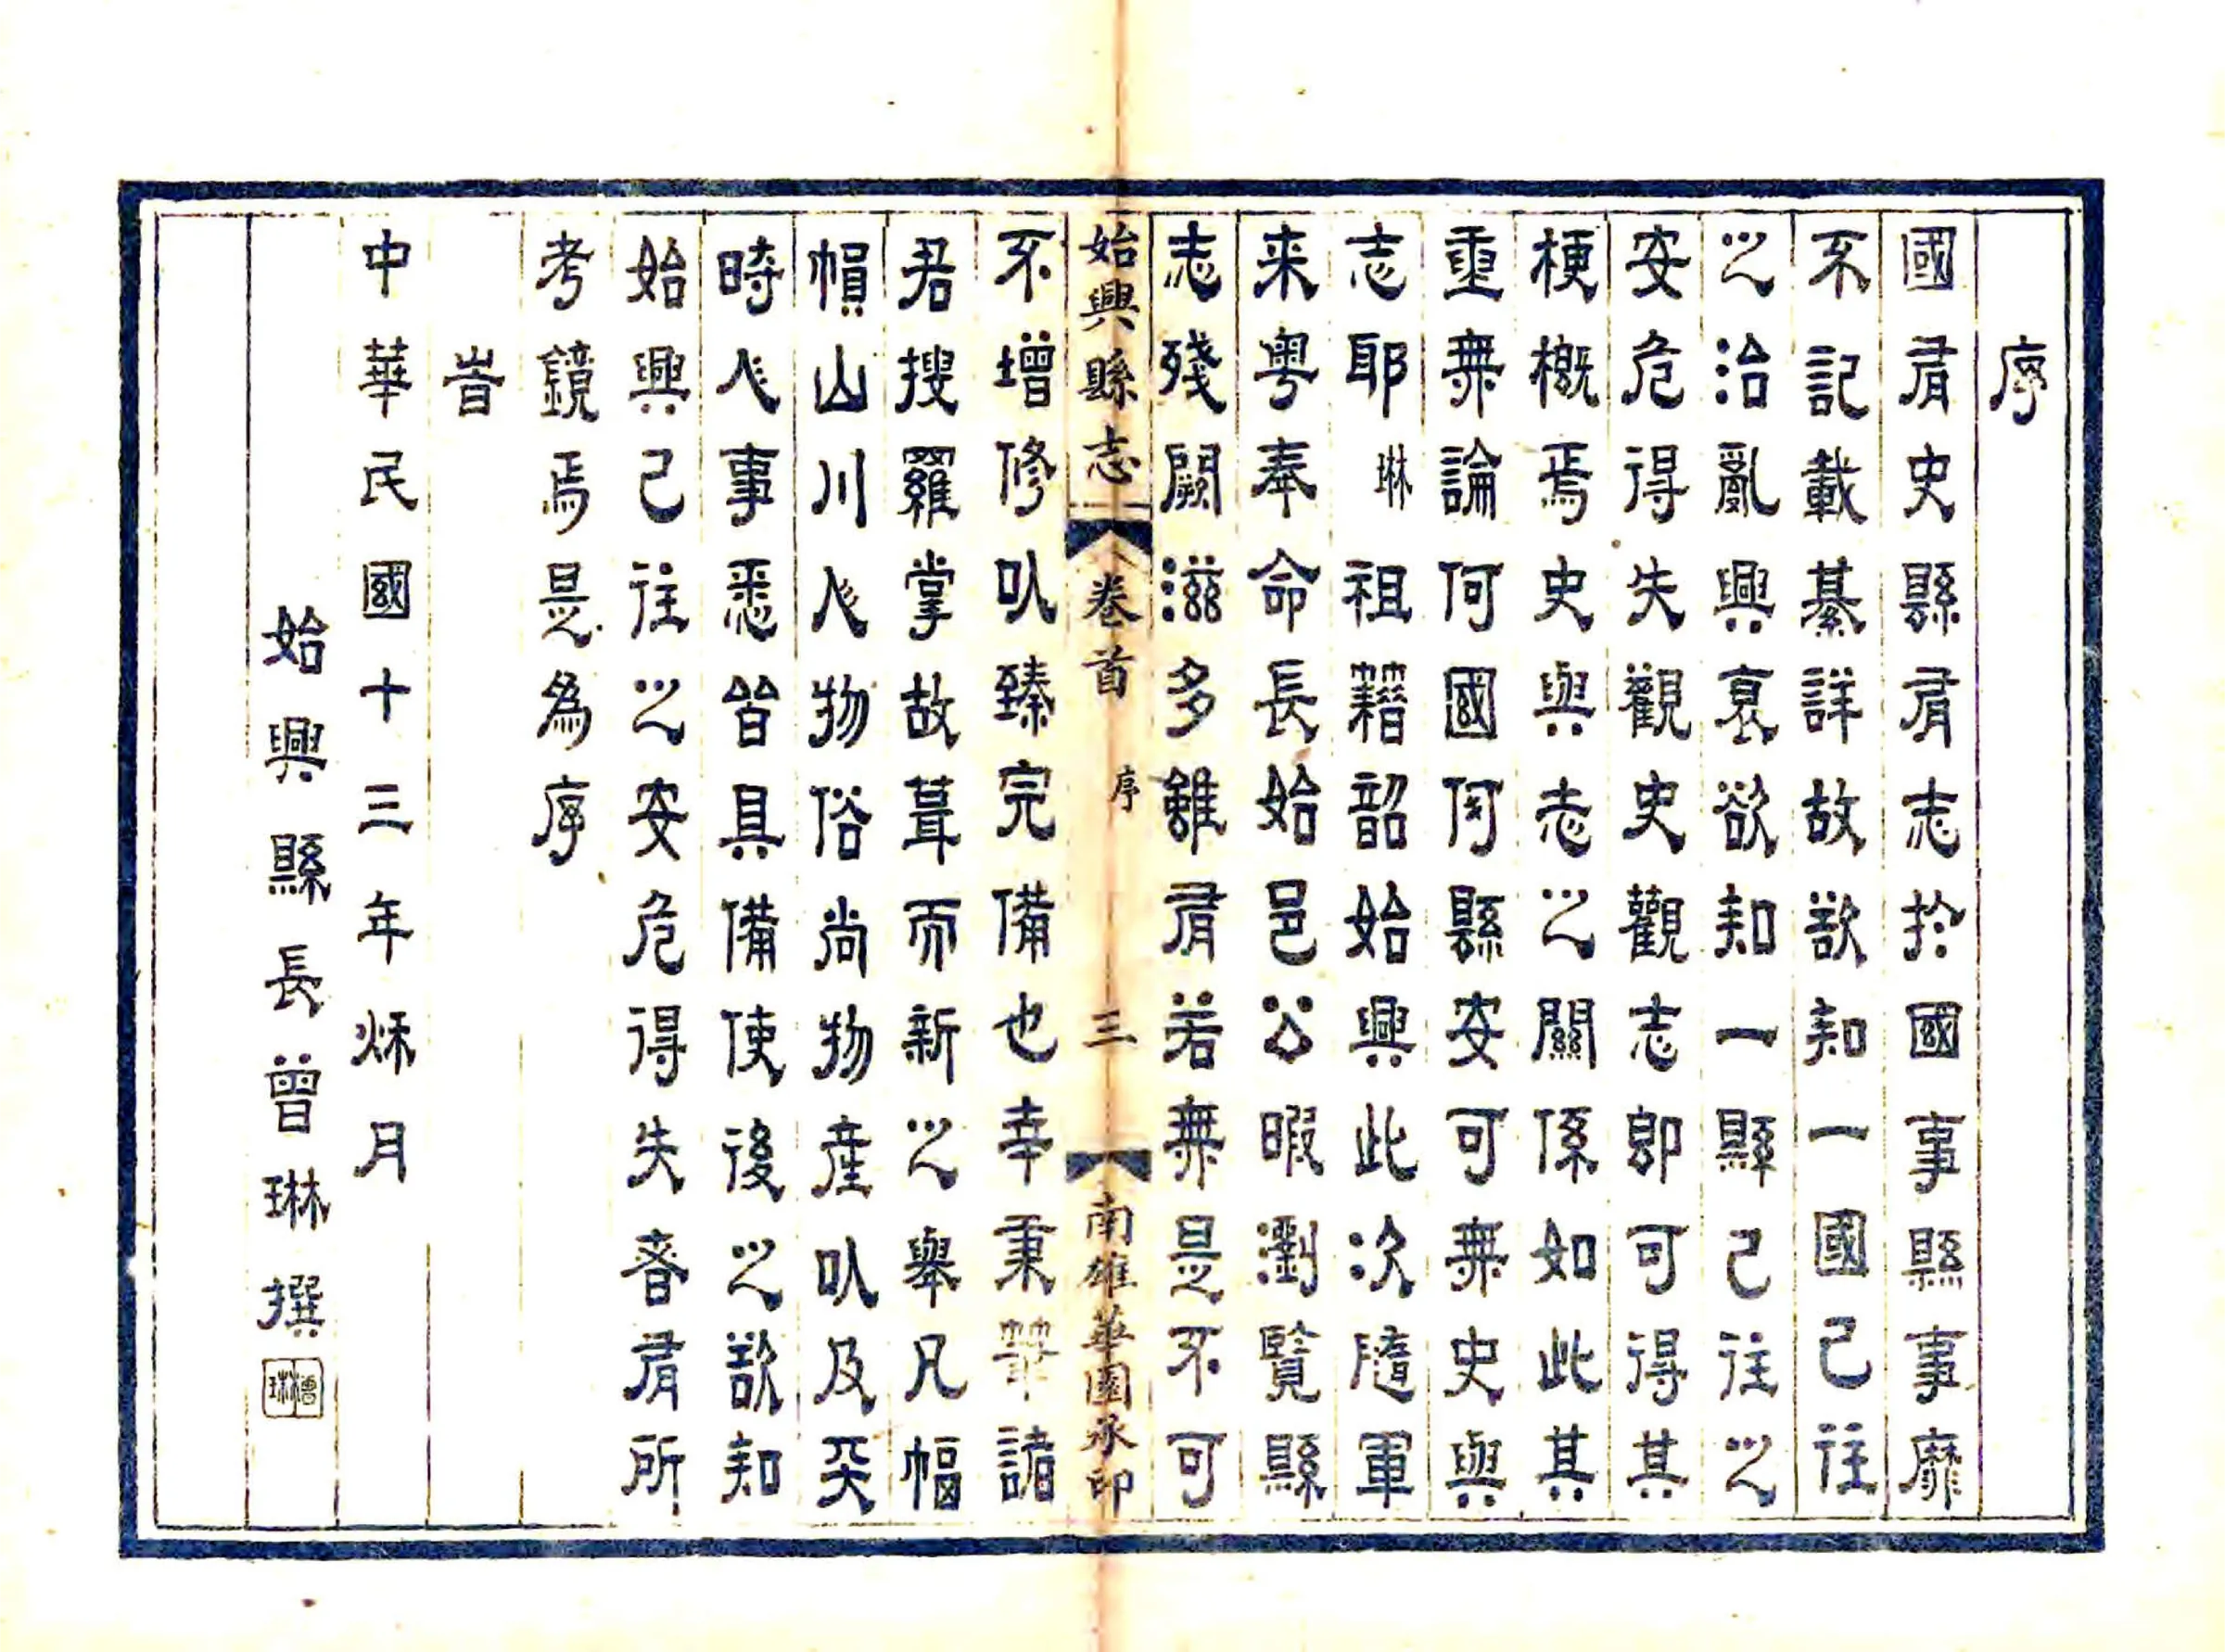 序
國有史縣有志於國事縣事靡
不記載綦詳故欲知一國已往
之治亂興衰欲知一縣已往之
安危得失觀史觀志即可得其
梗概焉史與志之關係如此其
重無論何國何縣安可無史與
志耶琳祖籍韶始興此次隨軍
来粤奉命長始邑公暇瀏覽縣
志殘闕滋多雖有若無是不可
始興縣志 卷首 序 三 南雄華園承印
不增修以臻完備也幸秉筆諸
君搜羅掌故葺而新之舉凡幅
㡓山川人物俗尚物産以及天
時人事悉皆具備使後之欲知
始興已往之安危得失者有所
考鏡焉是為序
旹
中華民國十三年秌月
始興縣長曾琳撰